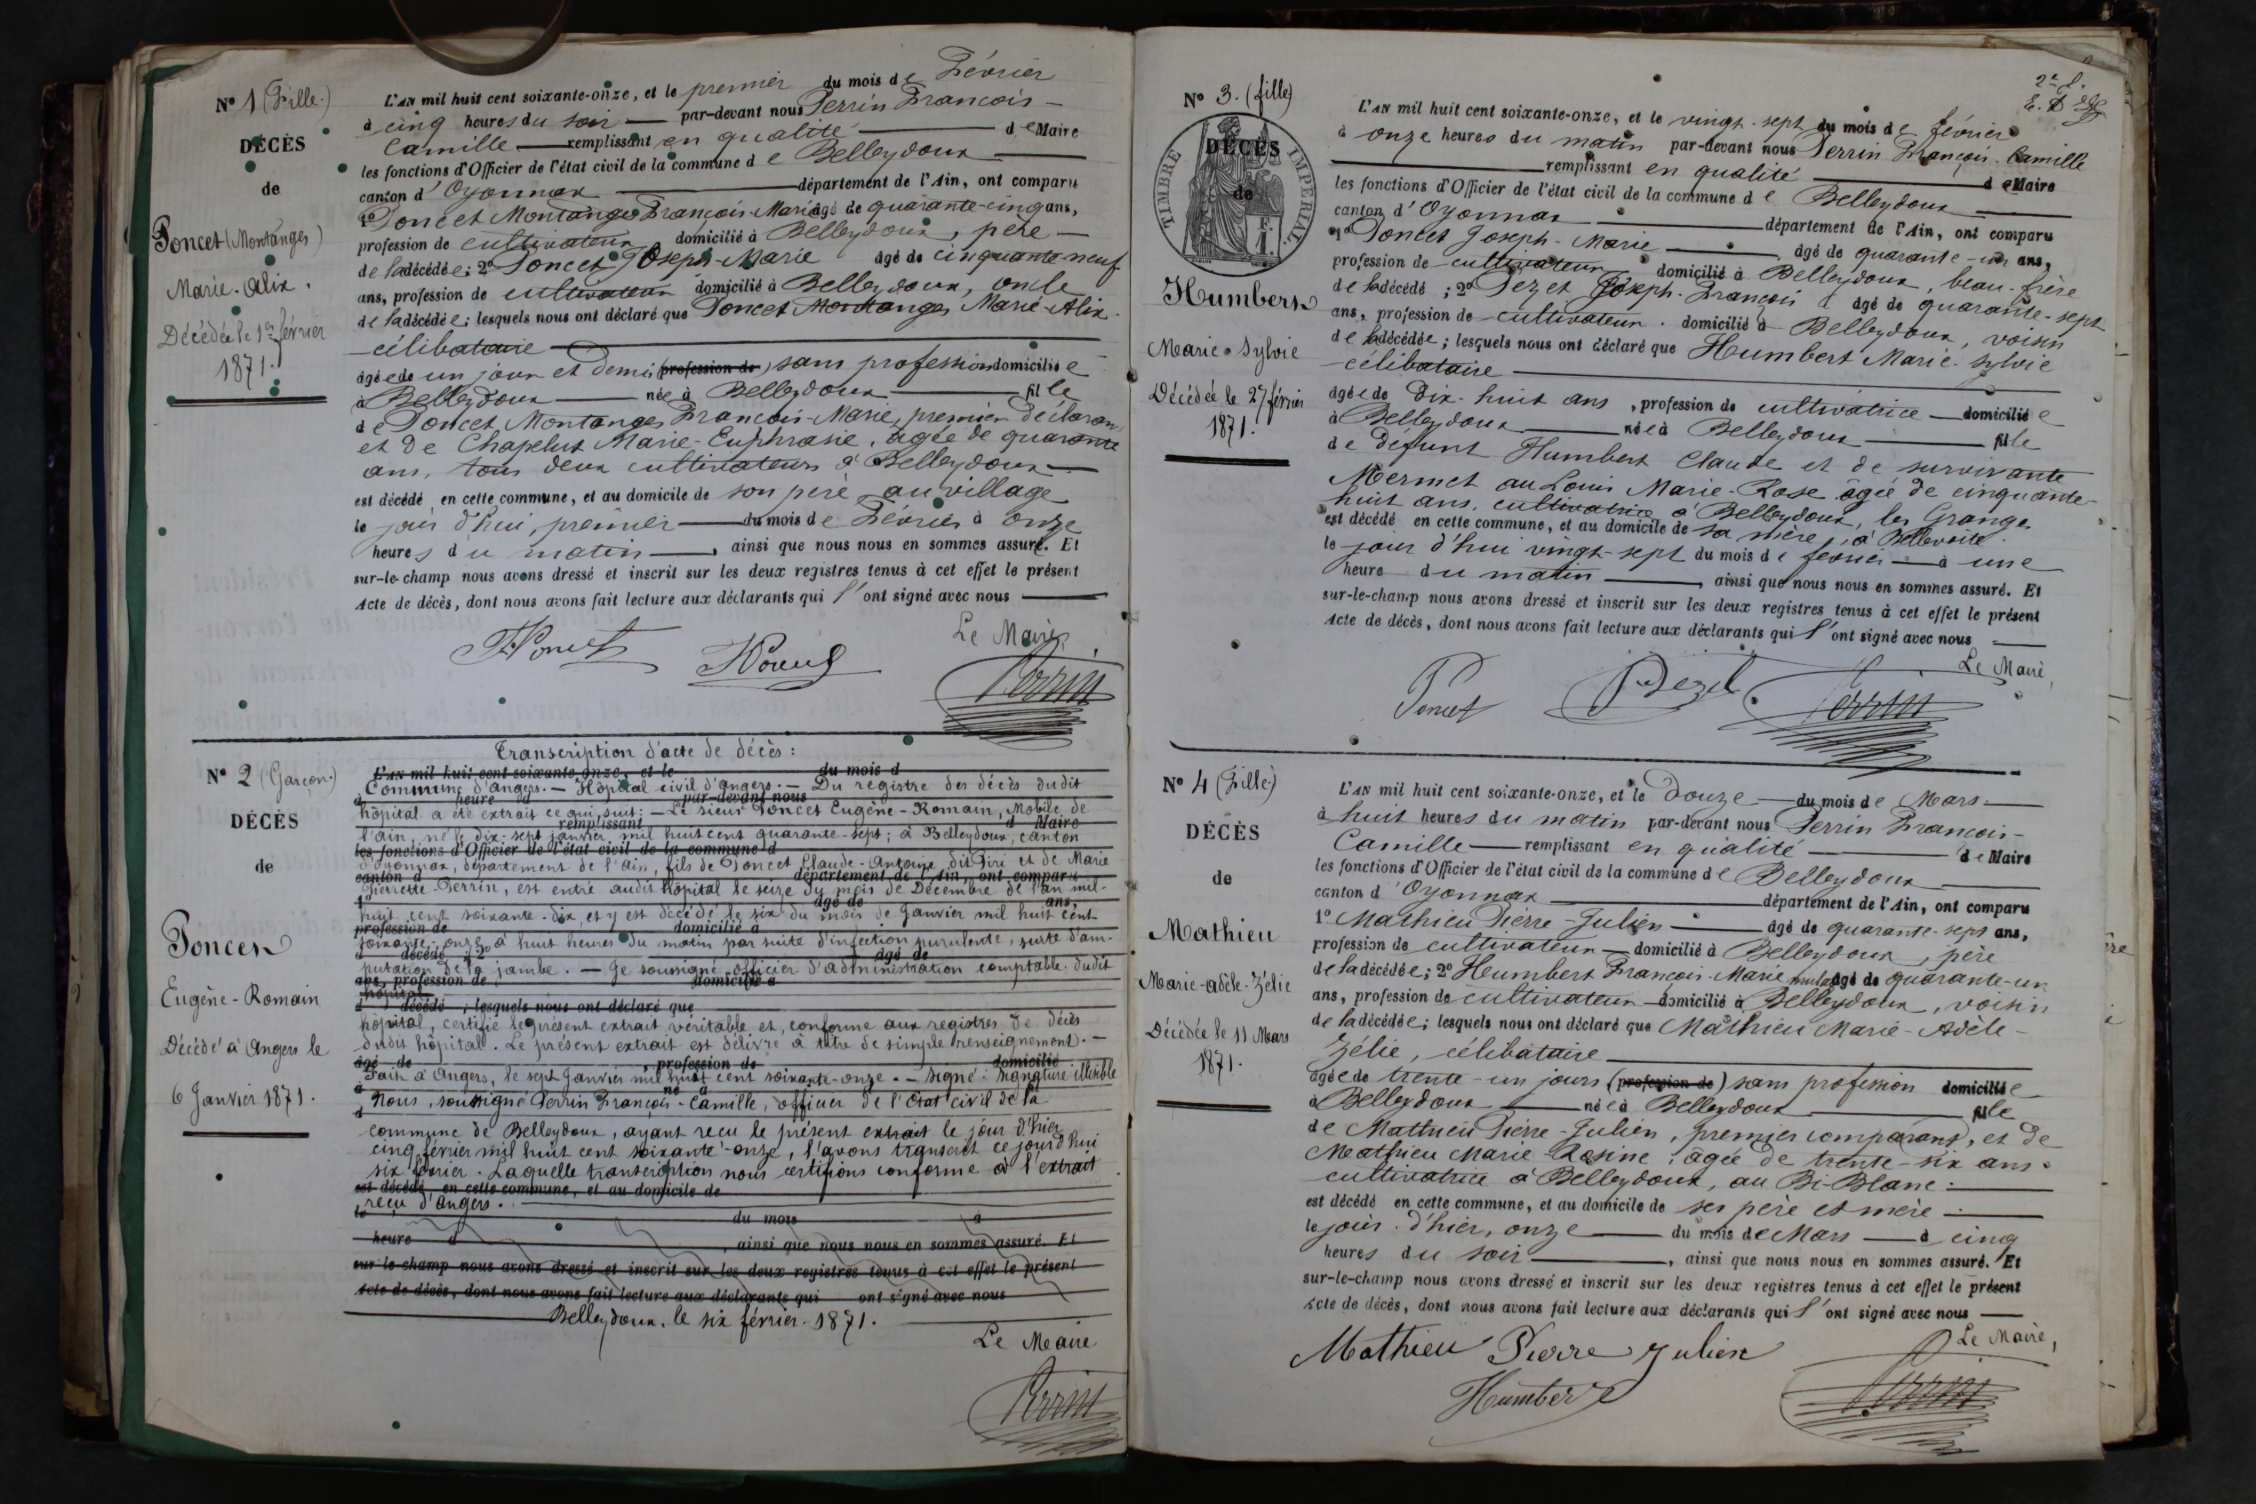 N° 1 (Fille.)
DÉCÈS
de
Poncet (Montanges)
Marie-Alix.
Décédée le 1er février
1871.
L'AN mil huit cent soixante-onze, et le premier du mois de Février
à cinq heures du soir par-devant nous Perrin François-
Camille remplissant en qualité de Maire
les fonctions d'Officier de l'état civil de la commune de Belleydoux
canton d'Oyonnax département de l'Ain, ont comparu
1° Poncet Montanges François-Marie âgé de quarante-cinq ans,
profession de cultivateur domicilié à Belleydoux, père
de la décédée; 2° Poncet Joseph-Marie âgé de cinquante-neuf
ans, profession de cultivateur domicilié à Belleydoux, oncle
de la décédée; lesquels nous ont déclaré que Poncet Montanges Marie-Alix
célibataire
âgée de un jour et demi (profession de) sans profession domiciliée
à Belleydoux née à Belleydoux fille
de Poncet Montanges François-Marie, premier déclarant
et de Chapelut Marie-Euphrasie, âgée de quarante
ans, tous deux cultivateurs à Belleydoux
est décédé en cette commune, et au domicile de son père au village
le jour d'hui premier du mois de Février à onze
heures du matin, ainsi que nous nous en sommes assuré. Et
sur-le-champ nous avons dressé et inscrit sur les deux registres tenus à cet effet le présent
Acte de décès, dont nous avons fait lecture aux déclarants qui l'ont signé avec nous
Le Maire
Perrin
N° 2 (Garçon.)
DÉCÈS
de
Poncet
Eugène-Romain
Décédé à Angers le
6 Janvier 1871.
Transcription d'acte de décès:
L'AN mil huit cent soixante-onze, et le du mois d
Commune d'Angers. — Hôpital civil d'Angers. — Du registre des décès dudit
à heure du par-devant nous
hôpital a été extrait ce qui suit: — Le sieur Poncet Eugène-Romain, Mobile de
remplissant d Maire
l'ain, né le dix-sept janvier mil huit cent quarante-sept; à Belleydoux, canton
les fonctions d'Officier de l'état civil de la commune d
d'oyonnax, département de l'Ain, fils de Poncet Claude-Antoine, dit Piri et de Marie
canton d département de l'Ain, ont comparu
Pierrette Perrin, est entré audit hôpital le seize du mois de Décembre de l'an mil-
1° âgé de ans,
huit cent soixante-dix, et y est décédé le six du mois de Janvier mil huit cent
profession de domicilié à
soixante-onze à huit heures du matin par suite d'infection purulente, suite d'am-
d décédé ; 2° âgé de
putation de la jambe. — Je soussigné officier d'administration comptable dudit
ans, profession de domicilié à
hôpital
d décédé ; lesquels nous ont déclaré que
hôpital, certifie le présent extrait véritable et, conforme aux registres de décès
dudit hôpital. Le présent extrait est délivré à titre de simple renseignement. —
âgé de , profession de domicilié
Fait à Angers, le sept Janvier mil huit cent soixante-onze. — signé: signature illisible
à né à
Nous, soussigné Perrin François-Camille, officier de l'Etat civil de la
d
commune de Belleydoux, ayant reçu le présent extrait le jour d'hier
cinq février mil huit cent soixante-onze, l'avons transcrit ce jourd'hui
six février. Laquelle transcription nous certifions conforme à l'extrait
est décédé en cette commune, et au domicile de
reçu d'Angers.
le du mois à
heure d , ainsi que nous nous en sommes assuré. Et
sur-le-champ nous avons dressé et inscrit sur les deux registres tenus à cet effet le présent
Acte de décès, dont nous avons fait lecture aux déclarants qui ont signé avec nous
Belleydoux, le six février 1871.
Le Maire
Perrin
2e f.
N° 3. (fille)
TIMBRE IMPERIAL
DÉCÈS
de
Humbert
Marie-Sylvie
Décédée le 27 février
1871.
L'AN mil huit cent soixante-onze, et le vingt-sept du mois de février
à onze heures du matin par-devant nous Perrin François-Camille
remplissant en qualité de Maire
les fonctions d'Officier de l'état civil de la commune de Belleydoux
canton d'Oyonnax département de l'Ain, ont comparu
1° Poncet Joseph-Marie âgé de quarante-un ans,
profession de cultivateur domicilié à Belleydoux, beau-frère
de la décédé ; 2° Pezet Joseph-François âgé de quarante-sept
ans, profession de cultivateur domicilié à Belleydoux, voisin
de la décédée; lesquels nous ont déclaré que Humbert Marie-Sylvie
célibataire
âgée de dix-huit ans, profession de cultivatrice domiciliée
à Belleydoux née à Belleydoux fille
de défunt Humbert Claude et de survivante
Mermet au Louis Marie-Rose âgée de cinquante-
huit ans, cultivatrice à Belleydoux, les Granges
est décédé en cette commune, et au domicile de sa mère, à Bellevoite
le jour d'hui vingt-sept du mois de février à une
heure du matin, ainsi que nous nous en sommes assuré. Et
sur-le-champ nous avons dressé et inscrit sur les deux registres tenus à cet effet le présent
Acte de décès, dont nous avons fait lecture aux déclarants qui l'ont signé avec nous
Le Maire,
Poncet Pezet Perrin
N° 4 (Fille)
DÉCÈS
de
Mathieu
Marie-adèle-Zélie
Décédée le 11 Mars
1871.
L'AN mil huit cent soixante-onze, et le douze du mois de Mars
à huit heures du matin par-devant nous Perrin François-
Camille remplissant en qualité de Maire
les fonctions d'Officier de l'état civil de la commune de Belleydoux
canton d'Oyonnax département de l'Ain, ont comparu
1° Mathieu Pierre-Julien âgé de quarante-sept ans,
profession de cultivateur domicilié à Belleydoux, père
de la décédée; 2° Humbert François-Marie âgé de quarante-un
ans, profession de cultivateur domicilié à Belleydoux, voisin
de la décédée; lesquels nous ont déclaré que Mathieu Marie-Adèle-
Zélie, célibataire
âgée de trente-un jours (profession de) sans profession domiciliée
à Belleydoux née à Belleydoux fille
de Mathieu Pierre-Julien, premier comparant, et de
Mathieu Marie-Rosine, âgée de trente-six ans
cultivatrice à Belleydoux, au Bi-Blanc
est décédé en cette commune, et au domicile de ses père et mère
le jour d'hier, onze du mois de Mars à cinq
heures du soir, ainsi que nous nous en sommes assuré. Et
sur-le-champ nous avons dressé et inscrit sur les deux registres tenus à cet effet le présent
Acte de décès, dont nous avons fait lecture aux déclarants qui l'ont signé avec nous
Le Maire,
Mathieu Pierre Julien
Humbert Perrin